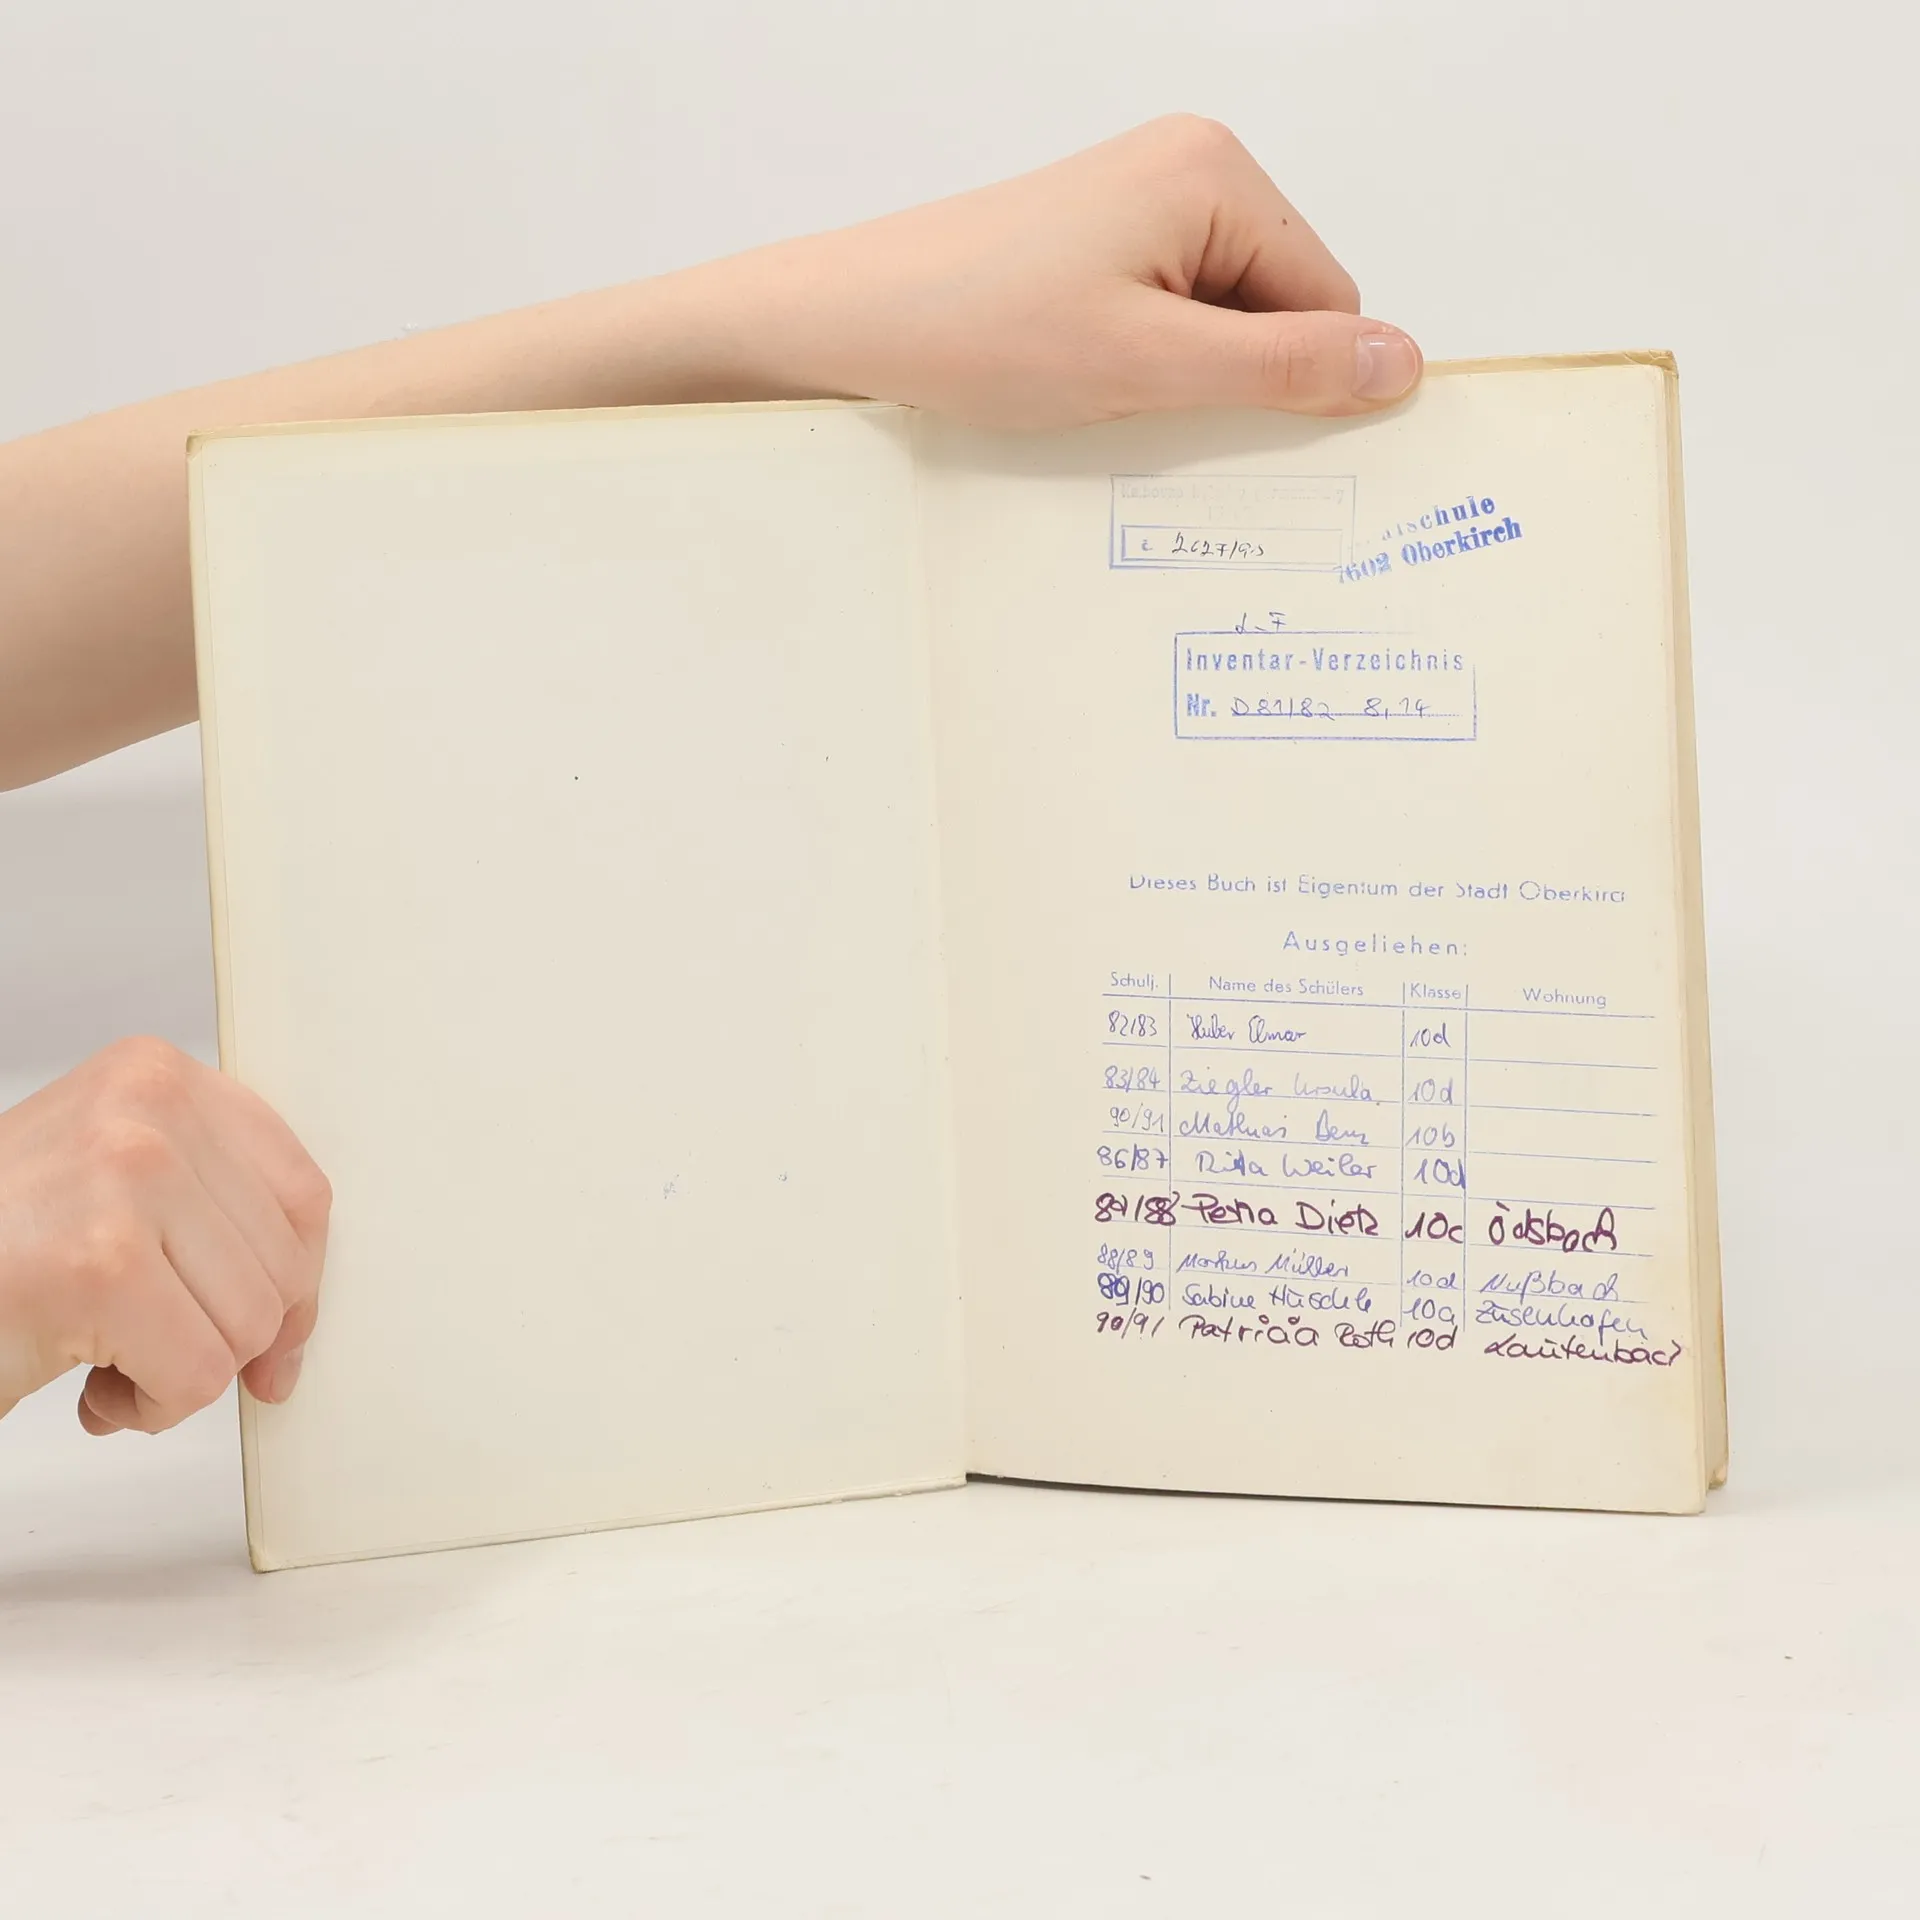 č. 2627/93
alschule
7602 Oberkirch
Inventar-Verzeichnis
Nr. D 81/82 8,14
Dieses Buch ist Eigentum der Stadt Oberkirc
Ausgeliehen:
Schulj. Name des Schülers Klasse Wohnung
82/83 Huber Elmar 10d
83/84 Ziegler Ursula 10d
90/91 Mathias Benz 10b
86/87 Rita Weiler 10d
87/88 Petra Dietz 10c Ödsbach
88/89 Markus Müller 10d Nußbach
89/90 Sabine 10a Zusenhofen
90/91 Patricia Roth 10d Lautenbach